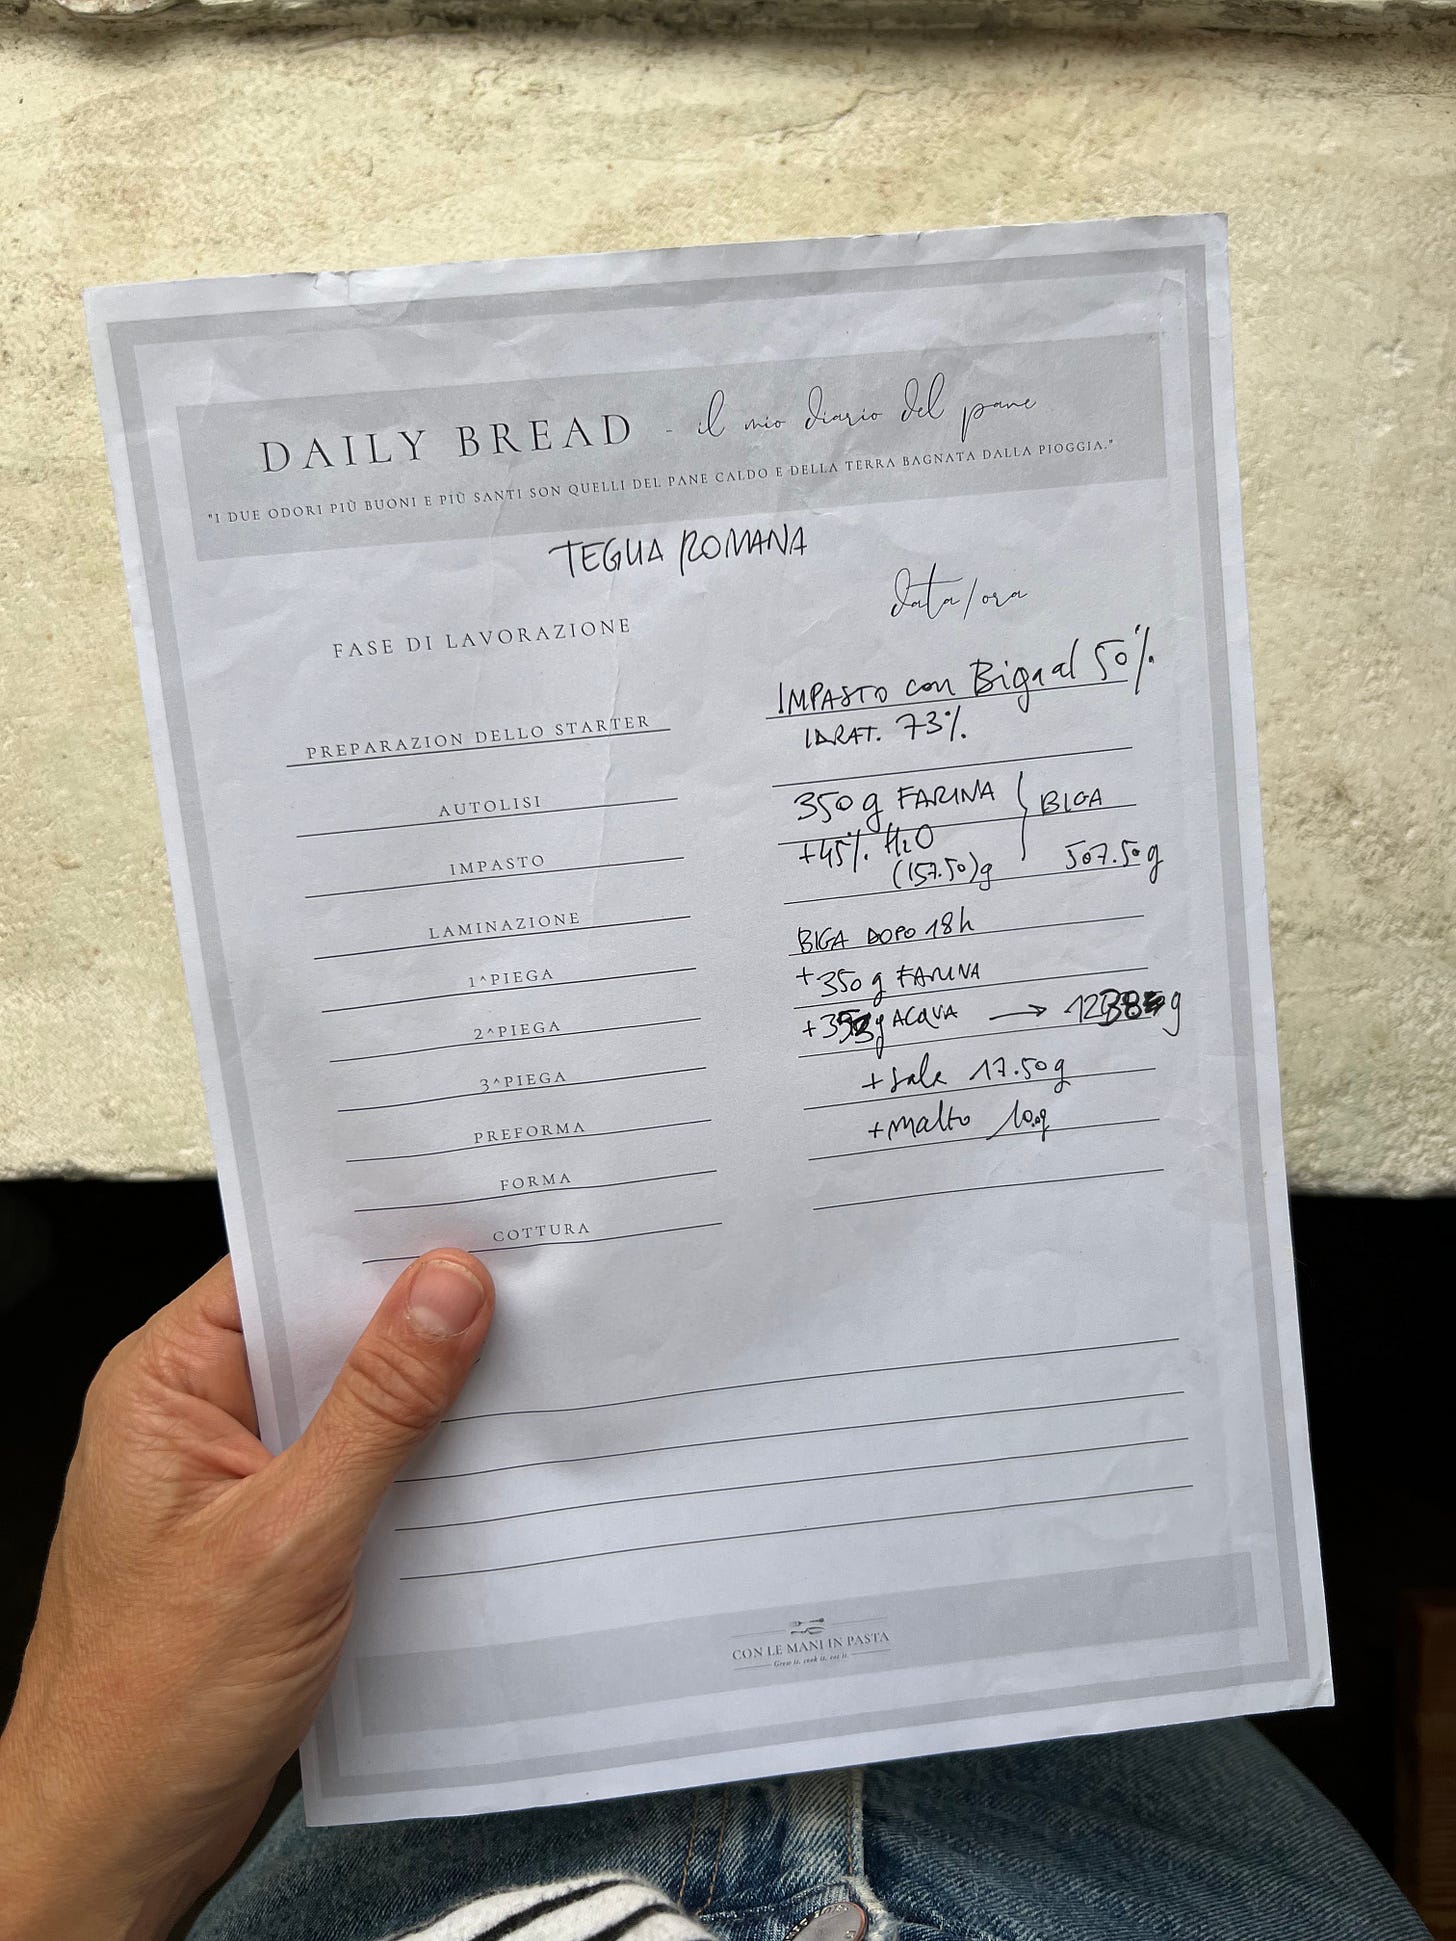 DAILY BREAD - il mio diario del pane
"I DUE ODORI PIÙ BUONI E PIÙ SANTI SON QUELLI DEL PANE CALDO E DELLA TERRA BAGNATA DALLA PIOGGIA."
TEGLIA ROMANA
FASE DI LAVORAZIONE
data/ora
PREPARAZION DELLO STARTER
AUTOLISI
IMPASTO
LAMINAZIONE
1^PIEGA
2^PIEGA
3^PIEGA
PREFORMA
FORMA
COTTURA
IMPASTO con Biga al 50%
IDRAT. 73%
350 g FARINA } BIGA
+45% H2O
(157.50)g 507.50g
BIGA DOPO 18h
+350 g FARINA
+353g ACQUA →
+ sale 17.50g
+ malto 10g
CON LE MANI IN PASTA
Grow it, cook it, eat it.